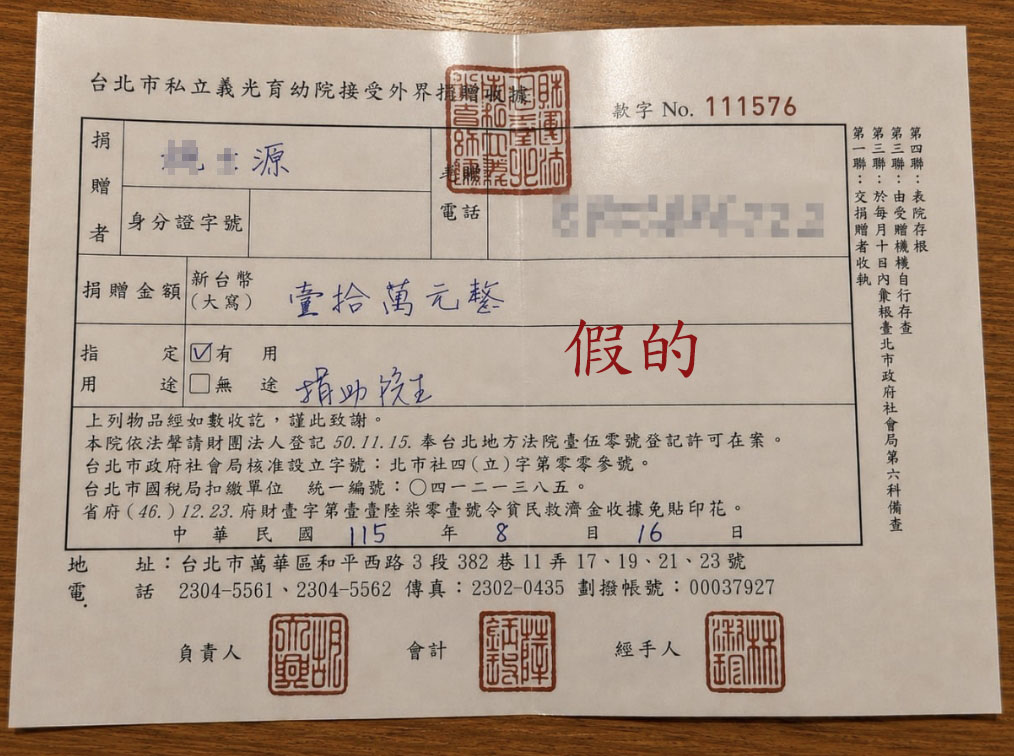 台北市私立義光育幼院接受外界捐贈收據
款字 No. 111576
捐贈者
源
身分證字號
電話
捐贈金額
新台幣
(大寫)
壹拾萬元整
指定用途
☑有用
□無途
捐助院生
假的
上列物品經如數收訖，謹此致謝。
本院依法聲請財團法人登記50.11.15.奉台北地方法院壹伍零號登記許可在案。
台北市政府社會局核准設立字號：北市社四(立)字第零零參號。
台北市國稅局扣繳單位 統一編號：○四一二一三八五。
省府(46.)12.23.府財壹字第壹壹陸柒零壹號令貧民救濟金收據免貼印花。
中華民國 115 年 8 月 16 日
第四聯：表院存根
第三聯：由受贈機機自行存查
第三聯：於每月十日內彙根臺北市政府社會局第六科備查
第一聯：交捐贈者收執
地址：台北市萬華區和平西路3段382巷11弄17、19、21、23號
電話 2304-5561、2304-5562 傳真：2302-0435 劃撥帳號：00037927
負責人
會計
經手人